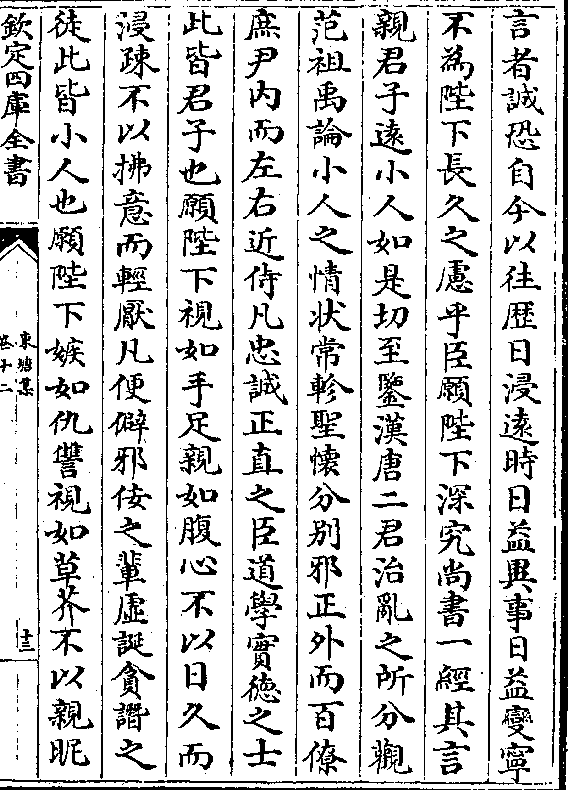 言者誠恐自今以往歴日浸遠時日益異事日益變寧
不為陛下長久之慮乎臣願陛下深究尚書一經其言
親君子遠小人如是切至鑒漢唐二君治亂之所分觀
范祖禹論小人之情状常軫聖懷分别邪正外而百僚
庶尹内而左右近侍凡忠誠正直之臣道學實德之士
此皆君子也願陛下視如手足親如腹心不以日久而
浸疎不以拂意而輕厭凡便僻邪佞之輩虚誕貪譖之
徒此皆小人也願陛下嫉如仇讐視如草芥不以親昵
欽定四庫全書
東塘集
卷十二
十三